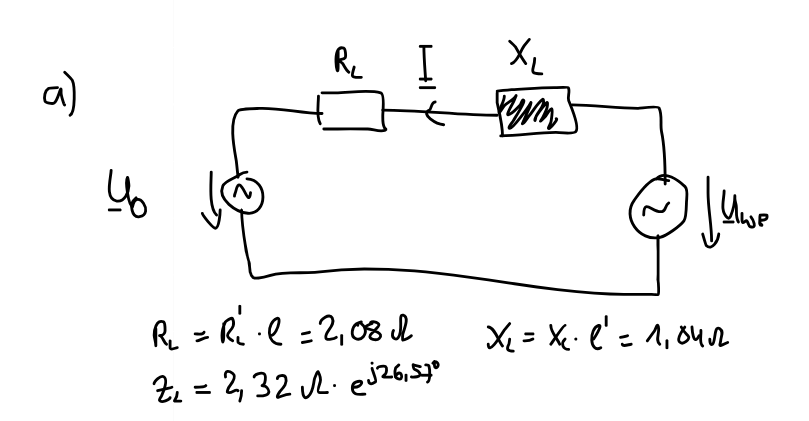 a)
R_L I X_L
U_0
U_WP
R_L = R_L' · l = 2,08 Ω X_L = X_L · l' = 1,04 Ω
Z_L = 2,32 Ω · e^{j26,57°}